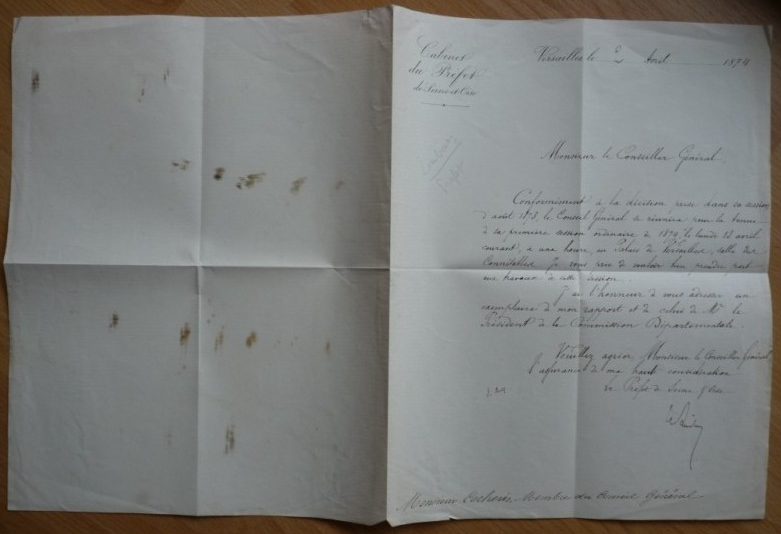 Cabinet
du Préfet
de Seine et Oise
Versailles le 2 Avril 1874
Monsieur le Conseiller Général,
Conformément à la décision prise dans sa session
d'août 1873, le Conseil Général se réunira pour la tenue
de sa première session ordinaire de 1874, le lundi 13 avril
courant, à une heure, au Palais de Versailles, salle des
Connétables. Je vous prie de vouloir bien prendre part
aux travaux de cette session.
J'ai l'honneur de vous adresser un
exemplaire de mon rapport et de celui de Mr le
Président de la Commission Départementale.
Veuillez agréer, Monsieur le Conseiller Général,
l'assurance de ma haute considération
Le Préfet de Seine & Oise
Monsieur Membre du Conseil Général